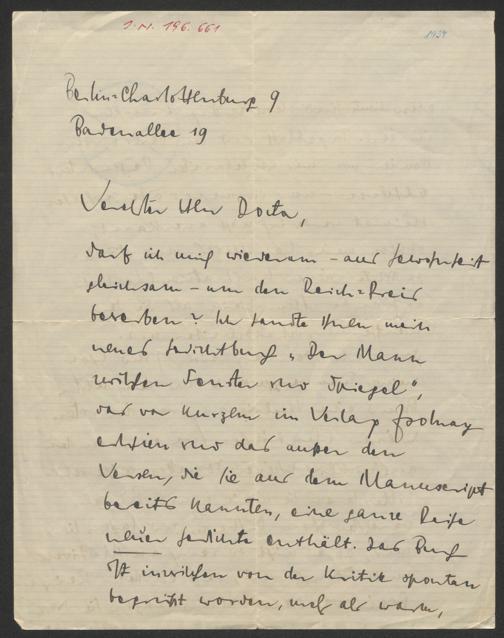 I.N. 196.661
1934
Berlin=Charlottenburg 9
Badenallee 19
Verehrter Herr Doctor,
darf ich mich wiederum – aus Gewohnheit
gleichsam – um den Reich=Preis
bewerben? Ich sandte Ihnen mein
neues Gedichtbuch „Der Mann
zwischen Fenster und Spiegel",
das vor kurzem im Verlag Zsolnay
erschien und das außer den
Versen, die Sie aus dem Manuscript
bereits kannten, eine ganze Reihe
neuer Gedichte enthält. Das Buch
ist inzwischen von der Kritik spontan
begrüßt worden, mehr als warm,